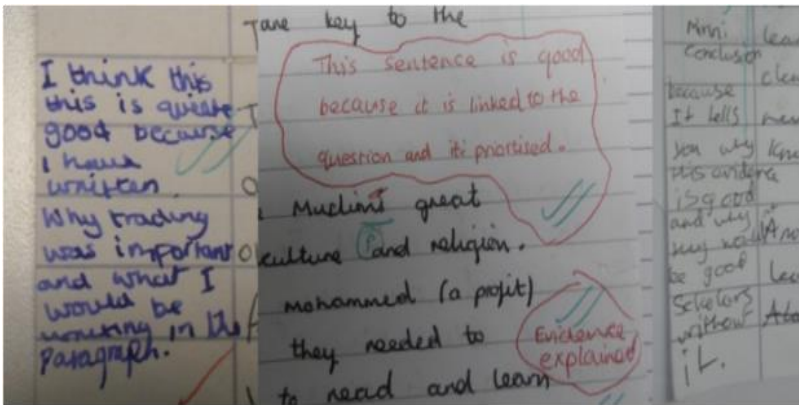 I think this
this is quiete
good because
I have
written
Why trading
was important
and what I
would be
writing in the
Paragraph.
Tane key to the
This sentence is good
because it is linked to the
question and its priortised.
Muclims great
culture and religion.
mohammed (a profit)
they needed to
Evidence
explained
to read and learn
Minni
Conclusion
because
It tells
you why
this evidence
is good
and why
they would
be good
Scholars
without
it.
lear
clea
Know